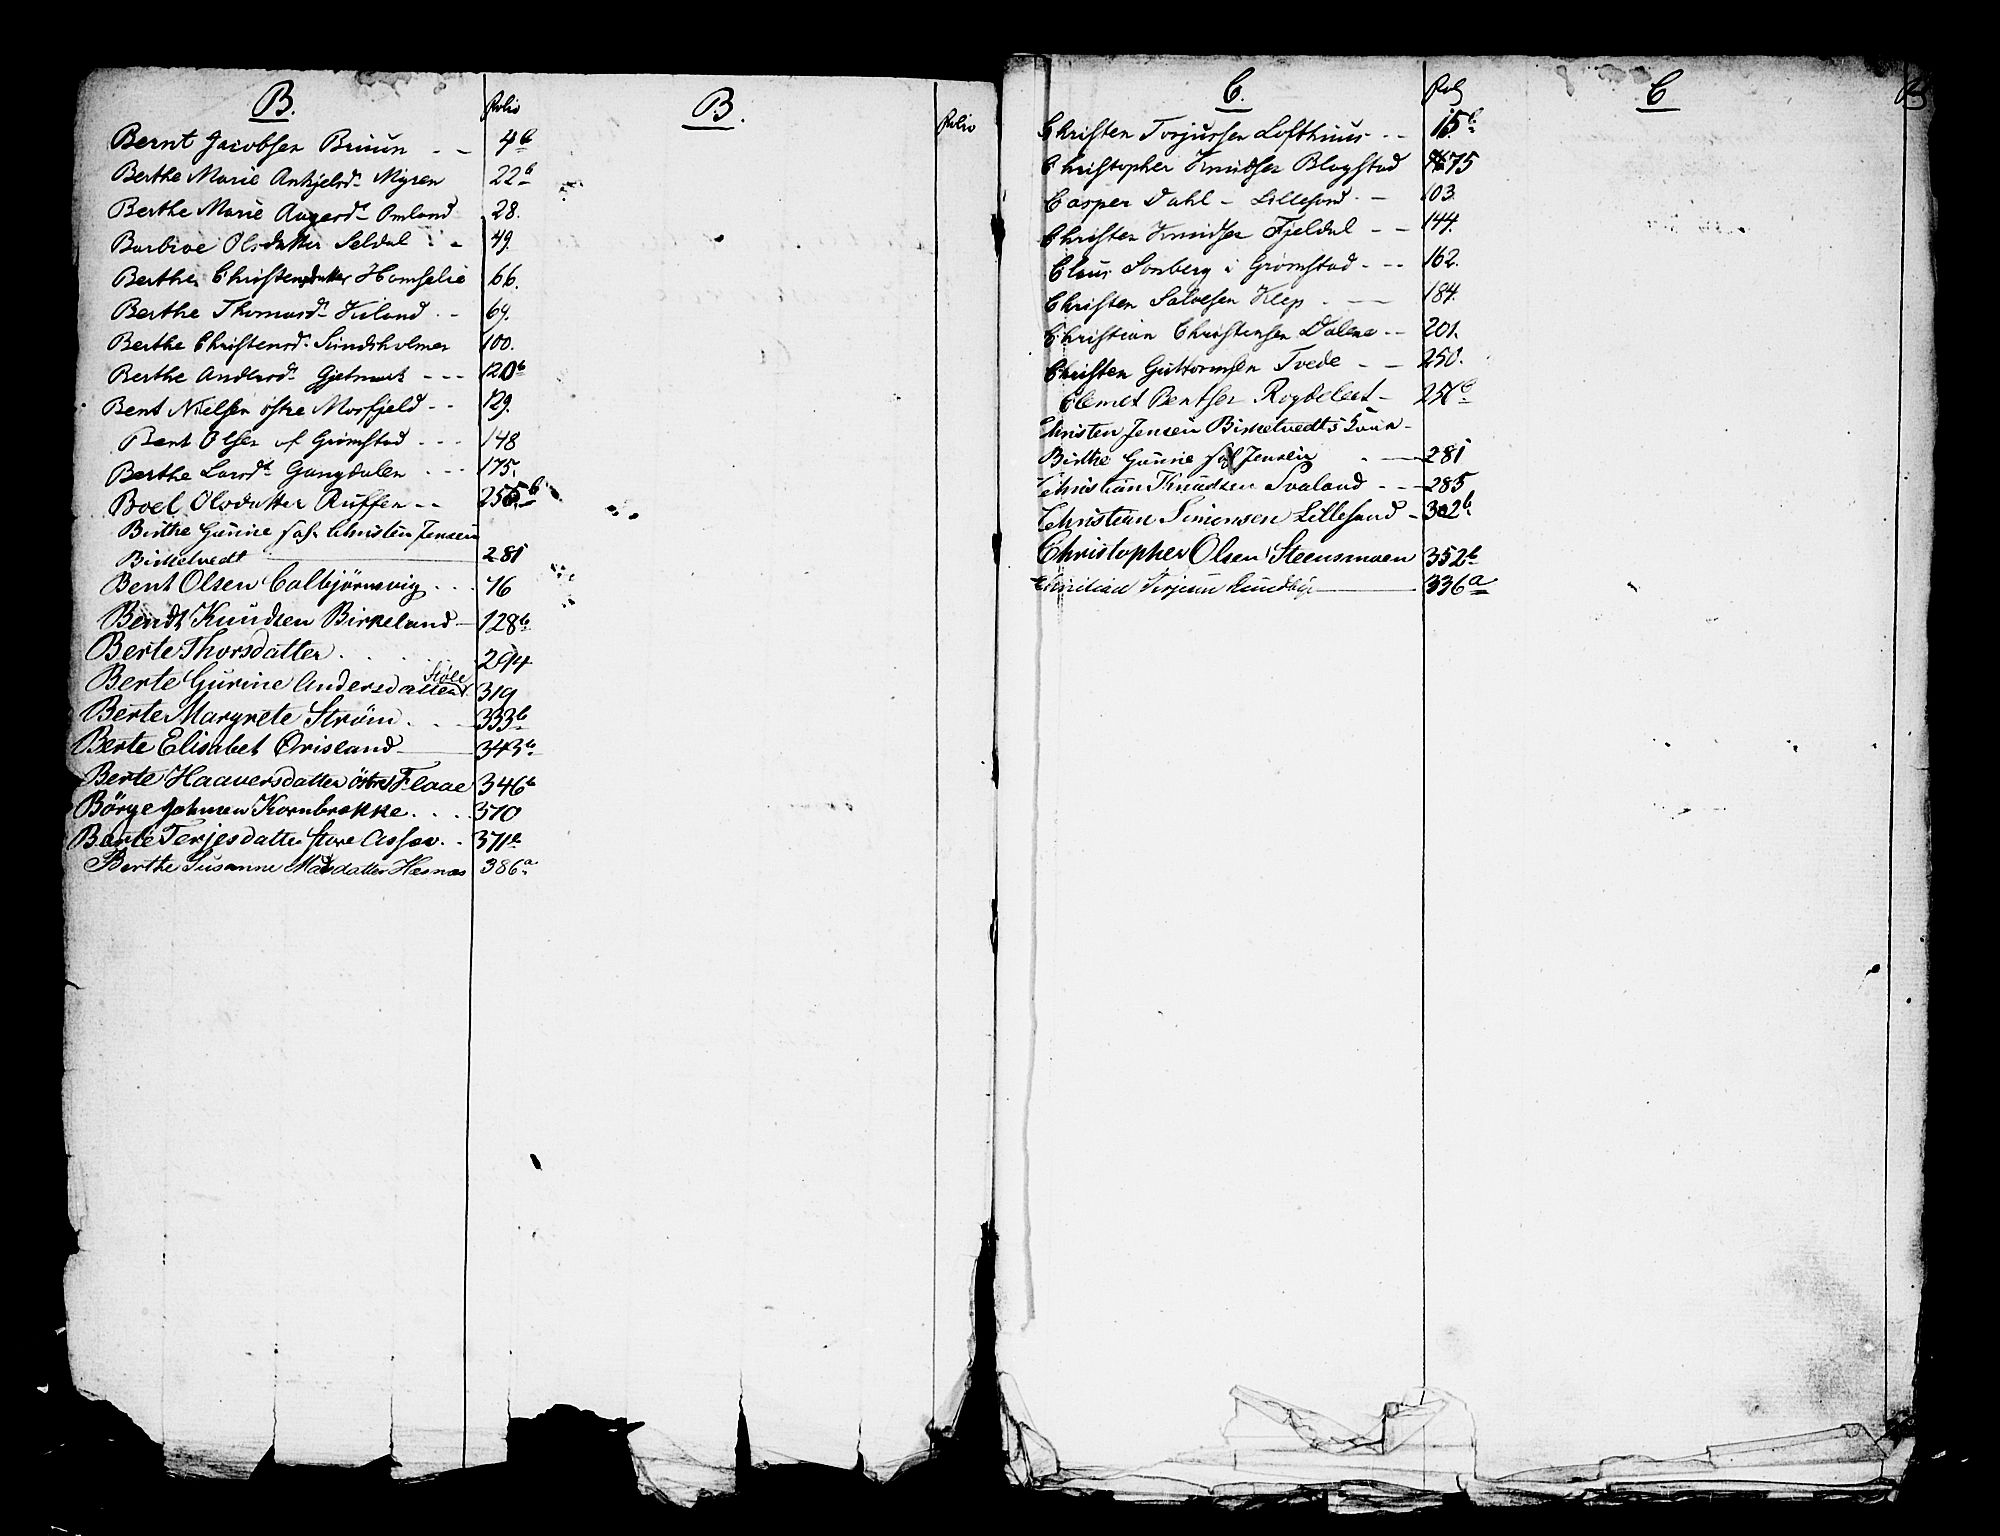 B.
Folio
Bernt Jacobsen Bruun - - 4b
Berthe Marie Ankjelsd. Myren 22b
Berthe Marie Aagesd. Omland 28.
Barbroe Olsdatter Seldal - - 49.
Berthe Christensdatter Homselie 66.
Berthe Thomasd. Kiland - - 69.
Berthe Christensd. Sundsholmen 100.
Berthe Andersd. Gjetmark - - - 120b
Bent Nielsen østre Mosfjeld - - 129.
Bent Olsen af Grimstad - - - 148
Berthe Larsd. Gangdalen - - - 175.
Boel Olsdatter Ruffen - - 255b
Birthe Gunne Christen Jensen
Birketvedt 281
Bent Olsen Calbjørnsvig . . . 76
Bendt Knudsen Birkeland - 128b
Berte Thorsdatter . . . . 294
Støle
Berte Gurine Andersdatter 319
Berte Margrete Strøm . . . 333b
Berte Elisabet Øvisland 343b
Berte Haaversdatter østre Flaae 346b
Börge Johnsen Kornbrekke . . . . 370
Berte Terjesdatter Store 371b
Berthe Susanne Madsdatter Hesnæs 386a
B.
Folio
C.
Fol
Christen Torjussen Lofthuus - - 15b
Christopher Knudsen Blagstad 75
Casper Dahl - Lillesand. - 103.
Christen Knudsen Fjeldal - - 144.
Claus Sonberg i Grimstad - - - 162.
Christen Salvesen Klep - - - 184.
Christian Christensen Dalene - - 201.
Christen Guttormsen Tvede - - 250.
Clemet Bentsen 256b
Christen Jensen Birketvedts
Birthe Gunne Jensen - 281
Christian Knudsen Svaland - - - 285
Christian Simonsen Lillesand - 302b.
Christopher Olsen Steensmoen 352b
336a
C
Fol